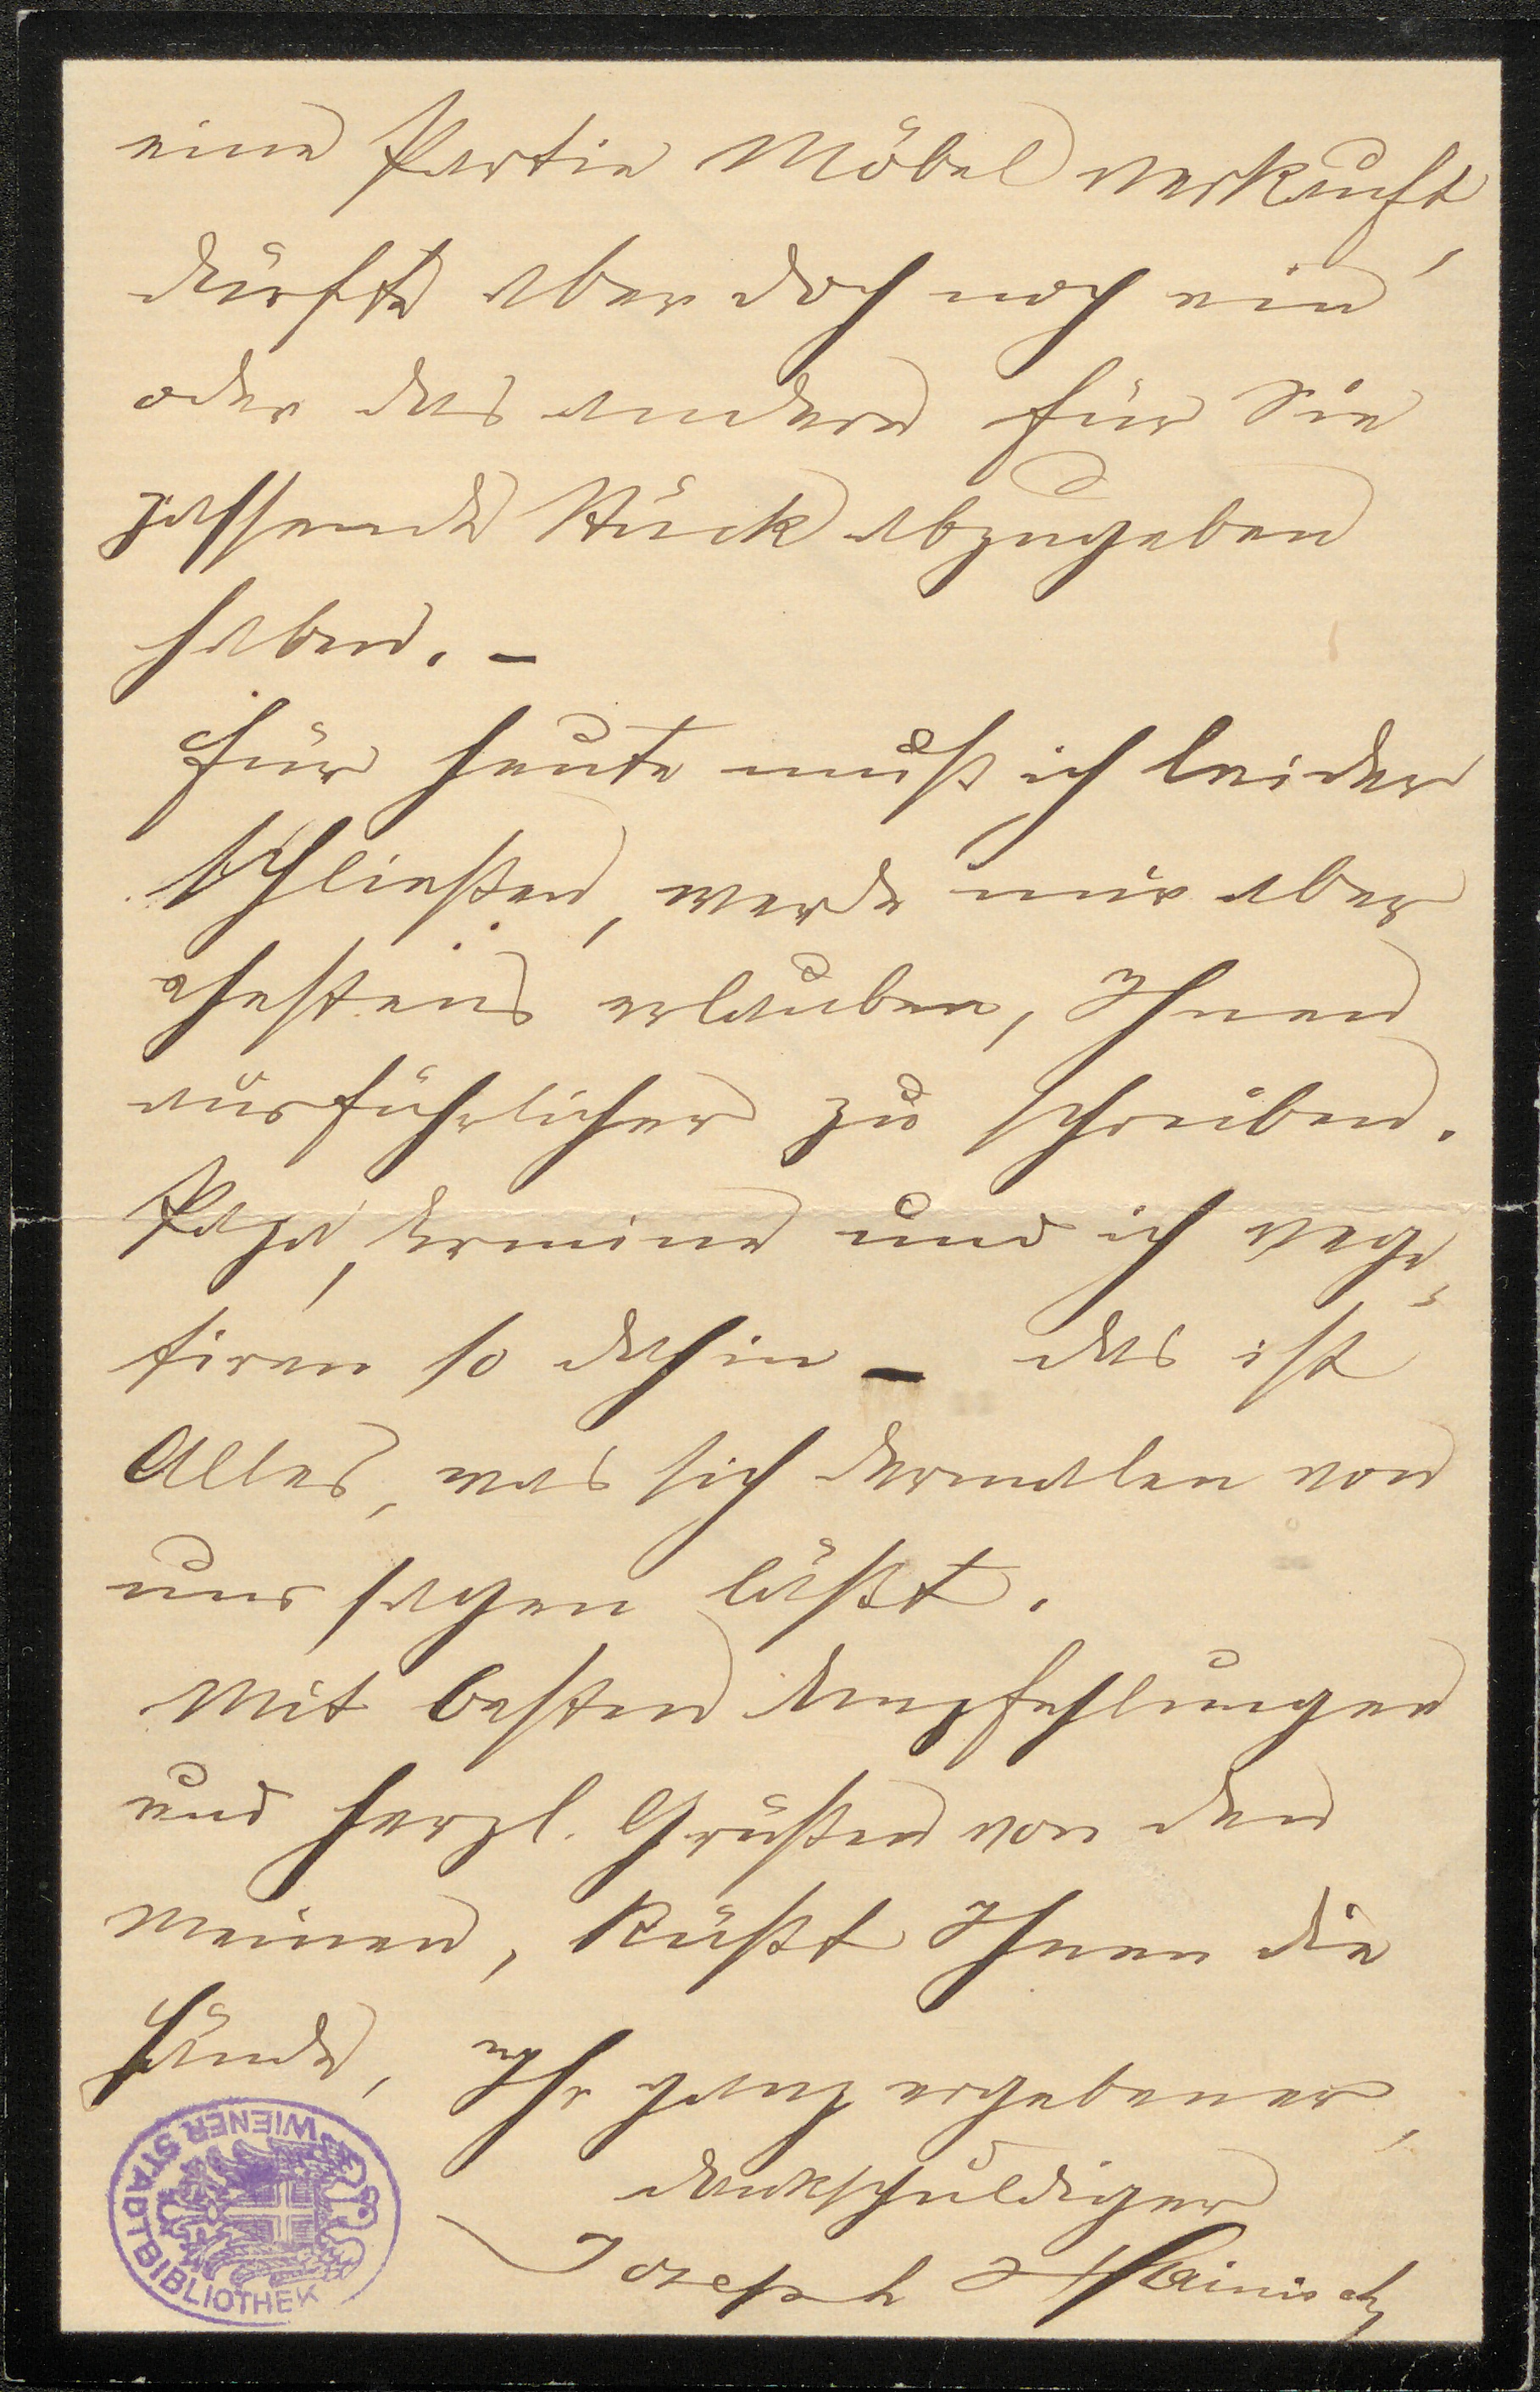 eine Partie Möbel verkauft,
dürfte aber doch noch ein
oder das andere für Sie
passende Stück abzugeben
haben. –
Für heute muß ich leider
schließen, werde mir aber
ehestens erlauben, Ihnen
ausführlicher zu schreiben.
Papa, Ermine und ich vege-
tiren so dahin – das ist
Alles, was sich dermalen von
uns sagen läßt.
Mit besten Empfehlungen
und herzl. Grüßen von den
Meinen, küßt Ihnen die
Hände, Ihr ganz ergebener,
dankschuldiger
Joseph Hainisch
WIENER STADTBIBLIOTHEK